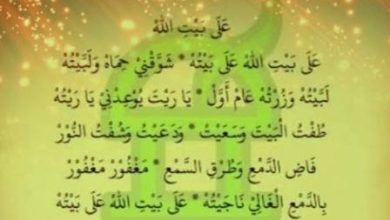 عَلَى بَيْتِ اللهْ
عَلَى بَيْتِ اللهْ عَلَى بَيْتُهْ * شَوَّقْنِيْ حِمَاهْ وَلَبَّيْتُهْ
لَبَّيْتُهْ وَزُرْتُهْ عَامْ أَوَّلْ * يَا رَيْتْ يُوْعِدْنِيْ يَا رَيْتُهْ
طُفْتُ الْبَيْتْ وَسَعَيْتْ * وَدَعَيْتْ وَشُفْتُ النُّوْرْ
فَاضِ الدَّمْعْ وَطَرَقِ السَّمْعْ * مَغْفُوْرْ مَغْفُوْرْ
بِالدَّمْعِ الْغَالِيْ نَاجَيْتُهْ * عَلَى بَيْتِ اللهْ عَلَى بَيْتُهْ